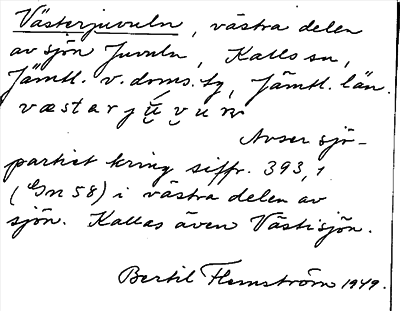 Västerjuvuln, västra delen
av sjön Juvuln, Kalls sn,
Jämtl. v. doms. tg, Jämtl. län.
væstarjú̬v̬un
Avser sjö-
partiet kring siffr. 393,1
(Gn 58) i västra delen av
sjön. Kallas även Västisjön.
Bertil Flemström 1949.